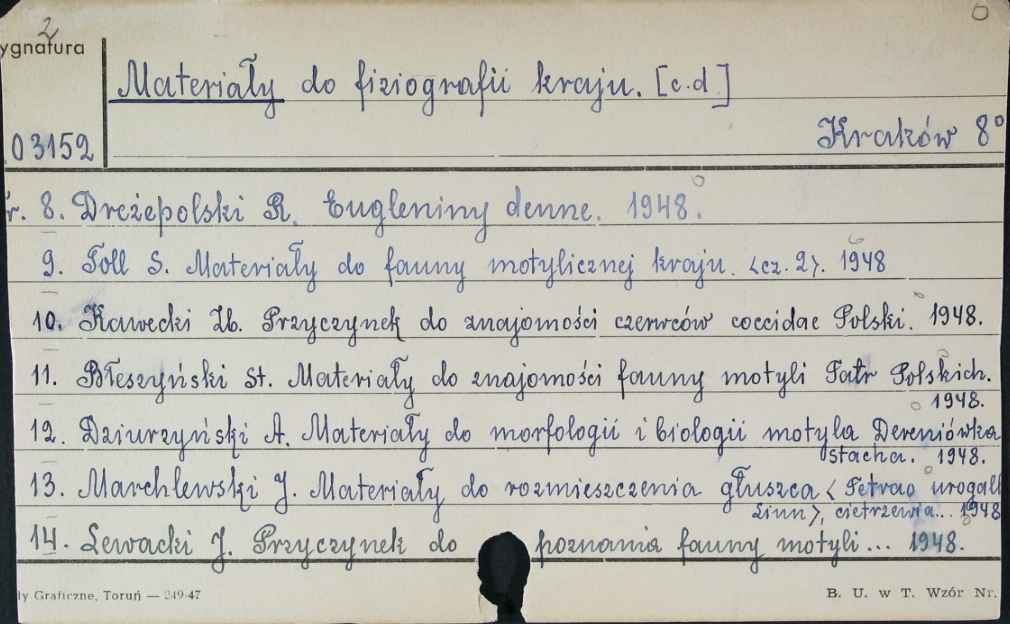 2
ygnatura
Materiały do fizjografii kraju. [c.d]
03152
Kraków 8°
r. 8. Drezepolski R. Eugleniny denne. 1948.
9. Toll S. Materiały do fauny motylicznej kraju. <cz. 2>. 1948
10. Kawecki Zb. Przyczynek do znajomości czerwców coccidae Polski. 1948.
11. Błeszyński St. Materiały do znajomości fauny motyli Tatr Polskich.
1948.
12. Dziurzyński A. Materiały do morfologii i biologii motyla Dereniówka
stacha. 1948.
13. Marchlewski J. Materiały do rozmieszczenia głuszca <Tetrao urogall
Linn>, cietrzewia... 1948
14. Lewacki J. Przyczynek do poznania fauny motyli... 1948.
ly Graficzne, Toruń — 249-47
B. U. w T. Wzór Nr.